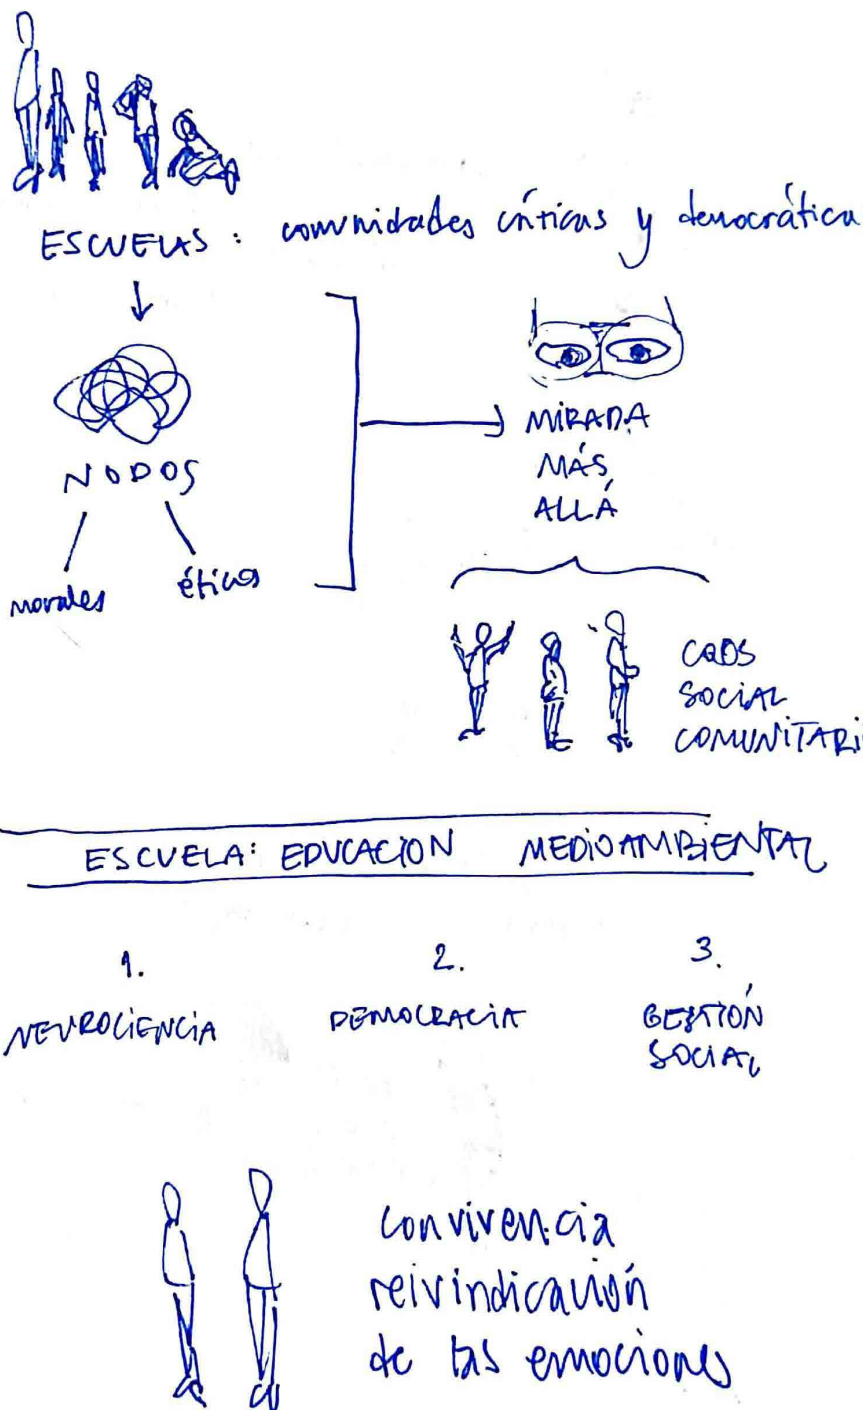 ESCUELAS: comunidades críticas y democrática
NODOS
morales éticos
MIRADA
MÁS
ALLÁ
CAOS
SOCIAL
COMUNITARI
ESCUELA: EDUCACION MEDIOAMBIENTAL
1. 2. 3.
NEUROCIENCIA DEMOCRACIA GESTIÓN
SOCIAL
convivencia
reivindicación
de las emociones